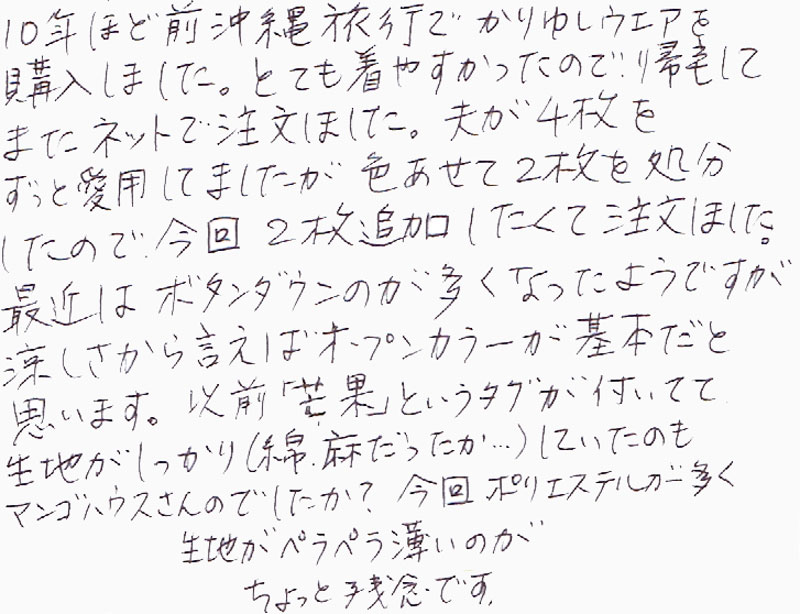 10年ほど前沖縄旅行でかりゆしウエアを
購入しました。とても着やすかったので帰宅して
またネットで注文しました。夫が4枚を
ずっと愛用してましたが色あせて2枚を処分
したので今回2枚追加したくて注文しました。
最近はボタンダウンのが多くなったようですが
涼しさから言えばオープンカラーが基本だと
思います。以前「芒果」というタグが付いてて
生地がしっかり(綿、麻だったか…)していたのも
マンゴハウスさんのでしたか？今回ポリエステルが多く
生地がペラペラ薄いのが
ちょっと残念です。